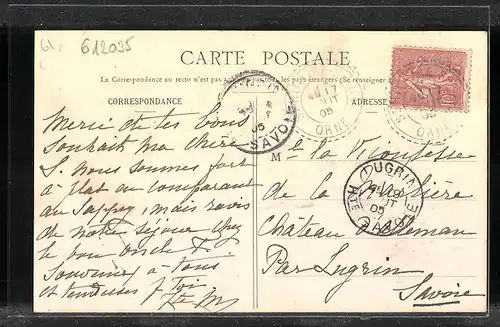 612035
CARTE POSTALE
La Correspondance au recto n'est pas pas étrangers (Se renseigner
CORRESPONDANCE
ADRESSE
Merci de tes bons
souhaits ma chère
S. nous sommes fort
à plat au comparant
au Sappey mais ravis
de notre séjour chez
le bon oncle F.
souvenirs à tous
et tendresses p. toi
M
la Vicomtesse
de la
Château
Par Lugrin
Savoie
17
05
ORNE
05
SAVOIE
17
05
ORNE
LUGRIN
05
HTE SAVOIE
10